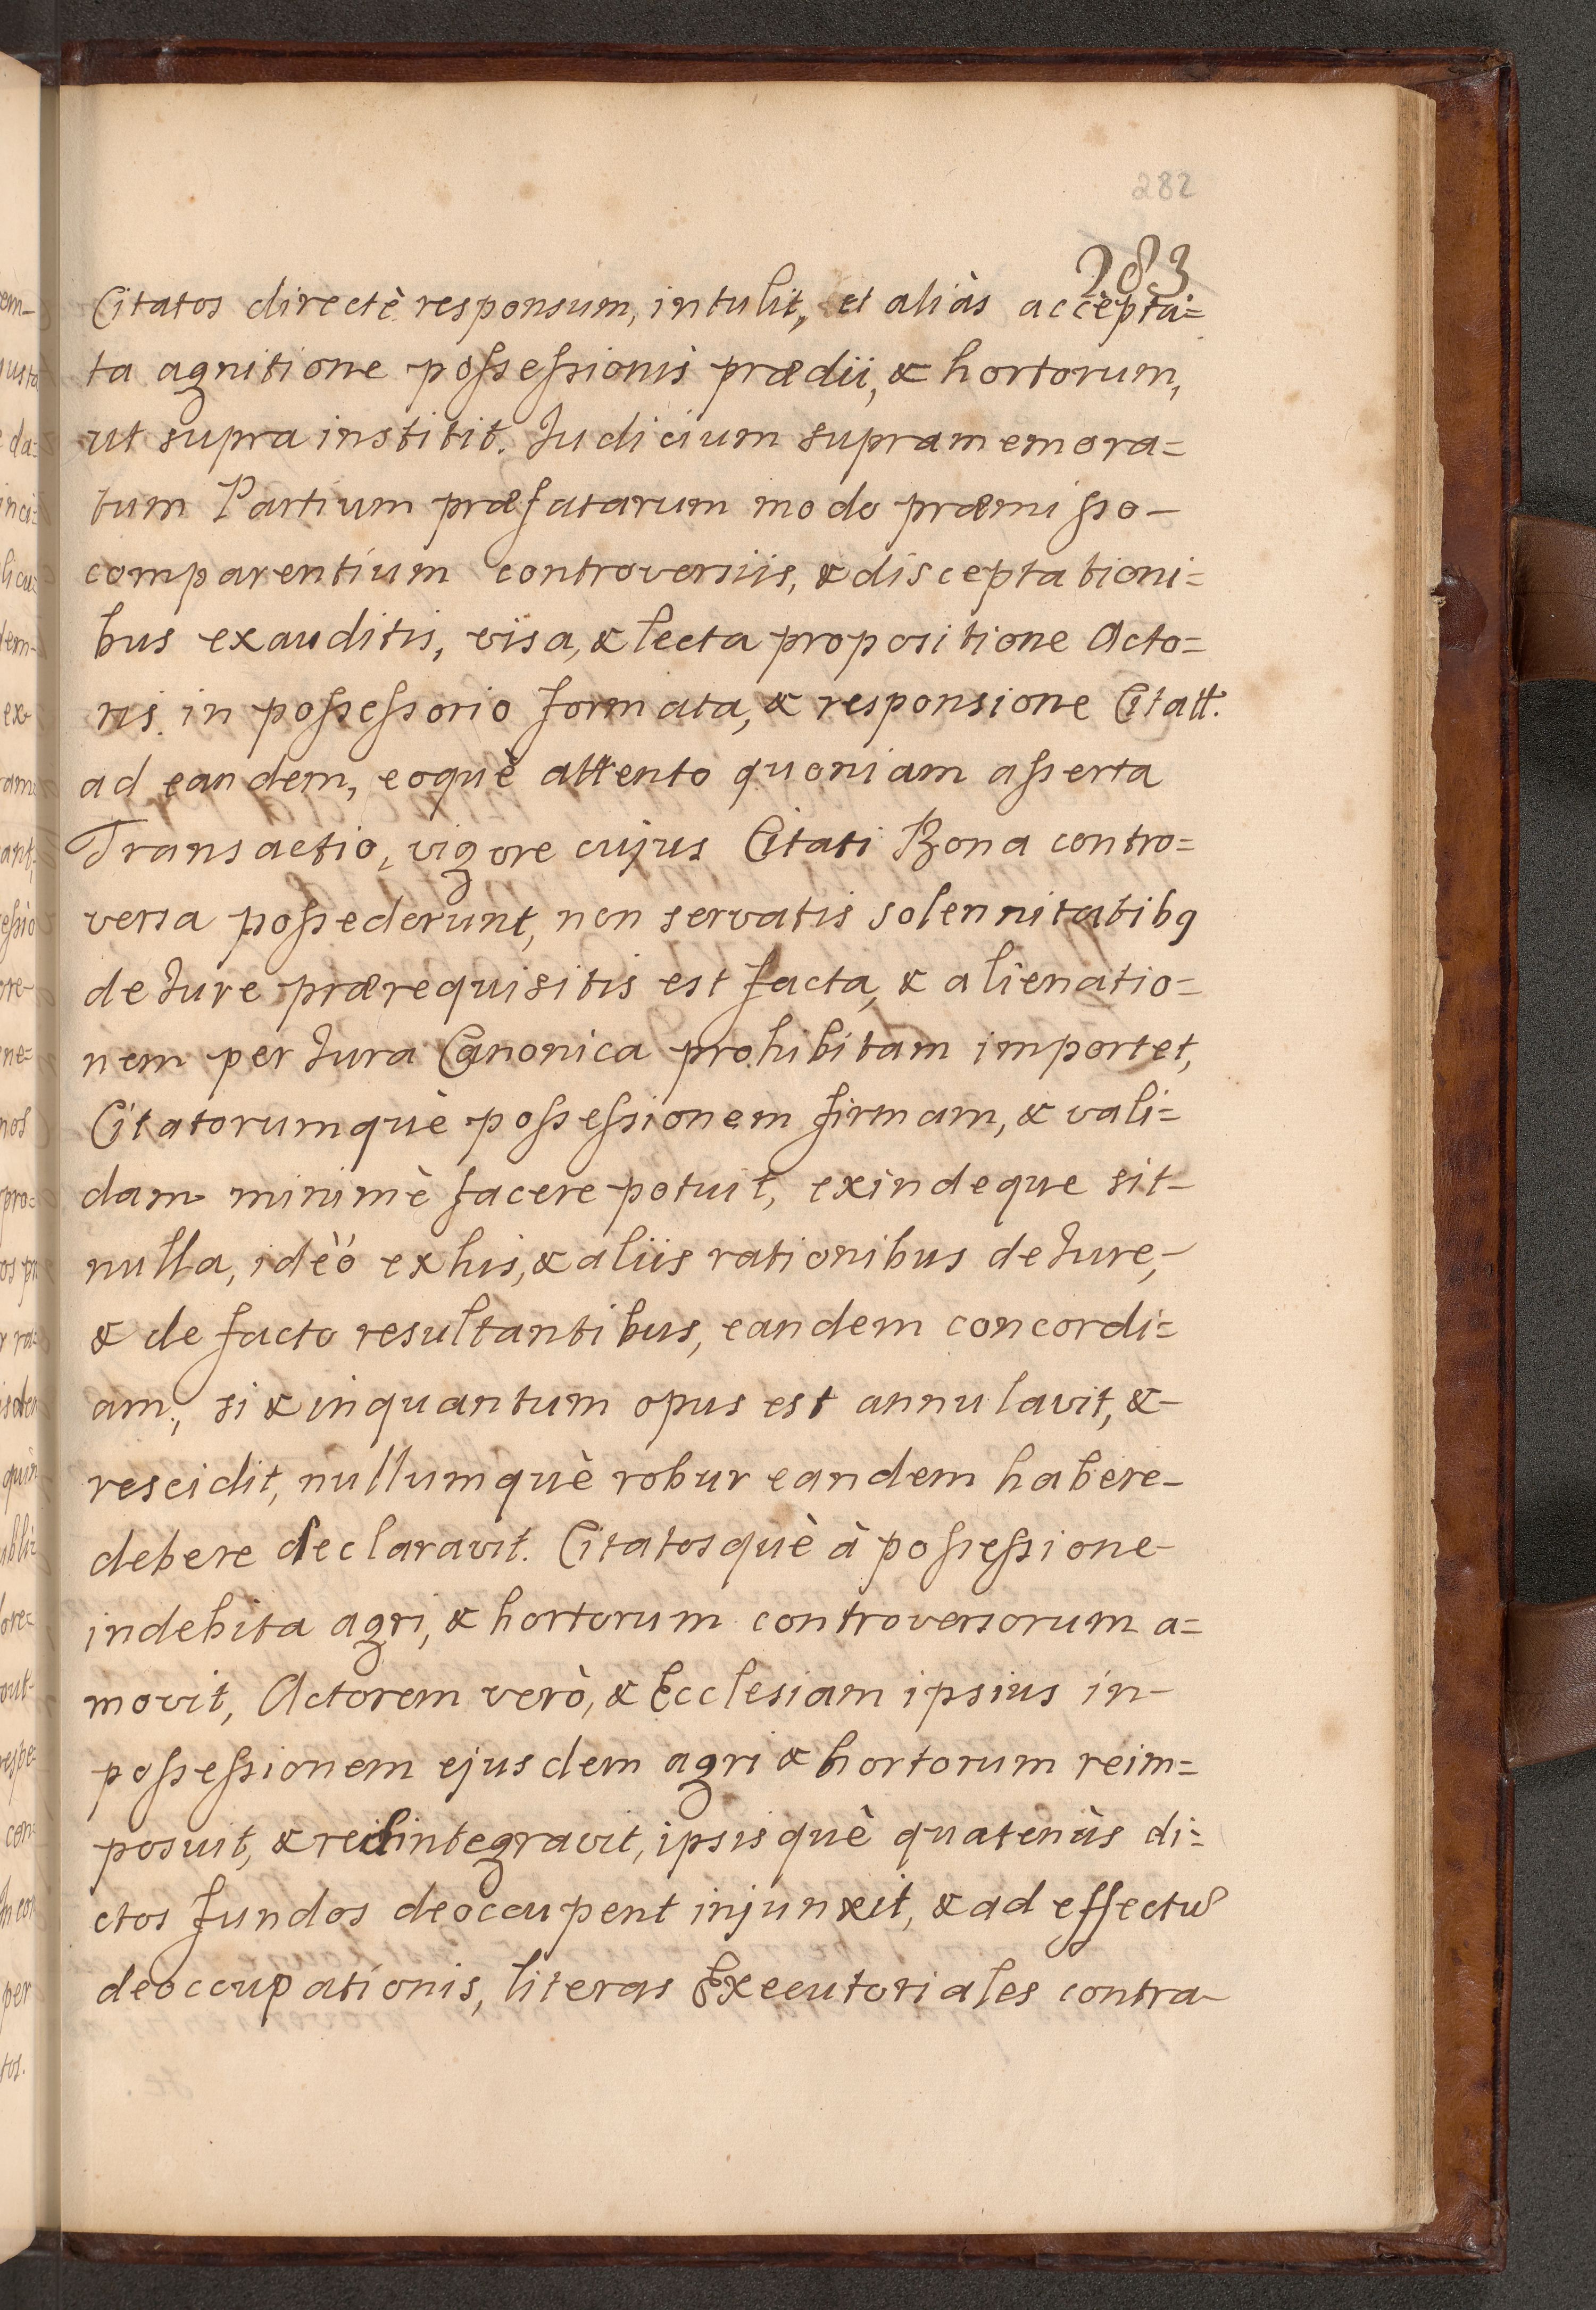 282
283
Citatos directè responsum, intulit, et aliàs accepta=
ta agnitione possessionis prædii, & hortorum,
ut supra institit. Judicium supramemora=
tum Partium præfatarum modo præmisso-
comparentium controversiis, & disceptationi=
bus exauditis, visa, & lecta propositione Acto=
ris in possessorio formata, & responsione Citatt.
ad eandem, eoquè attento quoniam asserta
Transactio, vigore cujus Citati Bona contro=
versa possederunt, non servatis solennitatibꝯ
de Jure prærequisitis est facta, & alienatio=
nem per Jura Canonica prohibitam importet,
Citatorumquè possessionem firmam, & vali=
dam minimè facere potuit, exindeque sit-
nulla, idèò ex his, & aliis rationibus de Jure,-
& de facto resultantibus, eandem concordi=
am, si & inquantum opus est annulavit, &-
rescidit, nullumquè robur eandem habere-
debere declaravit. Citatosquè à possessione-
indebita agri, & hortorum controversorum a=
movit, Actorem verò, & Ecclesiam ipsius in-
possessionem ejusdem agri & hortorum reim=
posuit, & redintegravit, ipsisquè quatenùs di=
ctos fundos deoccupent injunxit, & ad effectū
deoccupationis, literas Executoriales contra-